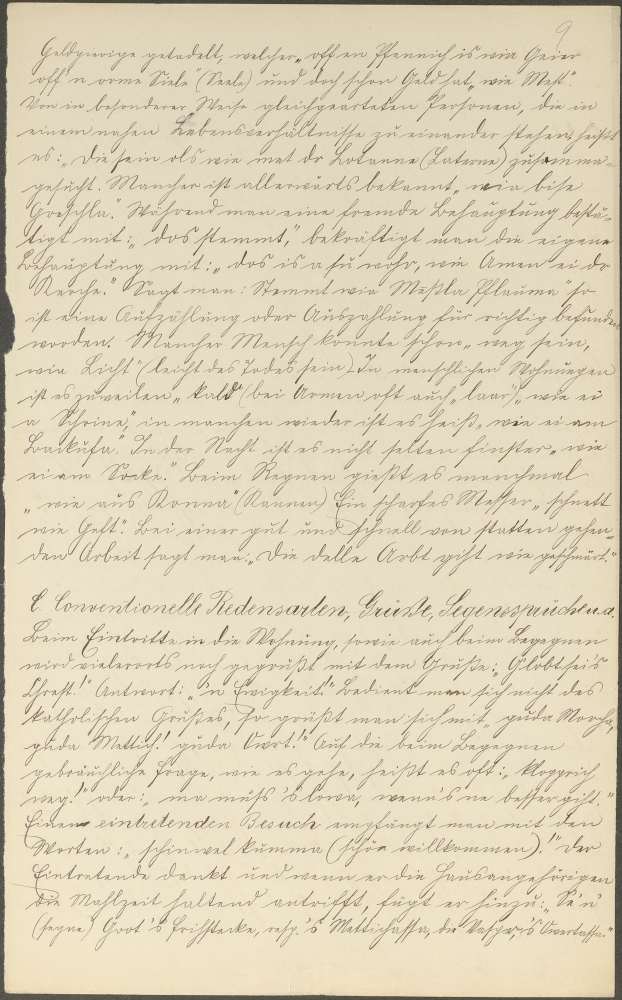 9
Geldgierige getadelt, welcher „off en Pfennich is wia Geier
off 'n orme Siele" (Seele) und doch schon Geld hat „wie Mest".
Von in besonderer Weise gleichgearteten Personen, die in
einem nahen Lebensverhältnisse zu einander stehen, heißt
es: „Die sein ols wie met dr Lotanne (Laterne) zusomma-
gesucht. Mancher ist allerwärts bekannt „wia bise
Greschla." Während man eine fremde Behauptung bestä-
tigt mit: „dos stemmt", bekräftigt man die eigene
Behauptung mit: „dos is a su wohr, wie Amen ei dr
Kerche." Sagt man: Stemmt wia Mestla Pflauma" so
ist eine Aufzählung oder Auszahlung für richtig befunden
worden. Mancher Mensch konnte schon „weg sein,
wia Licht" (leicht des Todes sein). In menschlichen Wohnungen
ist es zuweilen „kald" (bei Armen oft auch „laar"), „wie ei
a Schoine", in manchen wieder ist es heiß „wie ei am
Backufa." In der Nacht ist es nicht selten finster „wie
ei am Socke." Beim Regnen gießt es manchmal
„wie aus Konna" (Kannen) Ein scharfes Messer „schnett
wie Geft". Bei einer gut und schnell von statten gehen-
den Arbeit sagt man: „Die delle Arbt giht wie geschmiert."
C. Conventionelle Redensarten, Grüße, Segenssprüche u.a.
Beim Eintritte in die Wohnung, sowie auch beim Begegnen
wird vielerorts noch gegrüßt mit dem Gruße: „Globt sei's
Chrest!" Antwort: „in Ewigkeit!" Bedient man sich nicht des
katholischen Grußes, so grüßt man sich mit „guda Morcha,
guda Mettich! guda Owrt!" Auf die beim Begegnen
gebräuchliche Frage, wie es gehe, heißt es oft: „klopprich
weg!" oder: „ma muß 's lowa, wenn's ne besser giht."
Einen eintretenden Besuch empfängt man mit den
Worten: „schinwel kumma (schön willkommen)!" Der
Eintretende dankt und wenn er die Hausangehörigen
die Mahlzeit haltend antrifft, fügt er hinzu: „Se'n'
(segne) Goot 's Frihstecke, resp. 's Mettichassa, die Vasper, 's Owertassa."